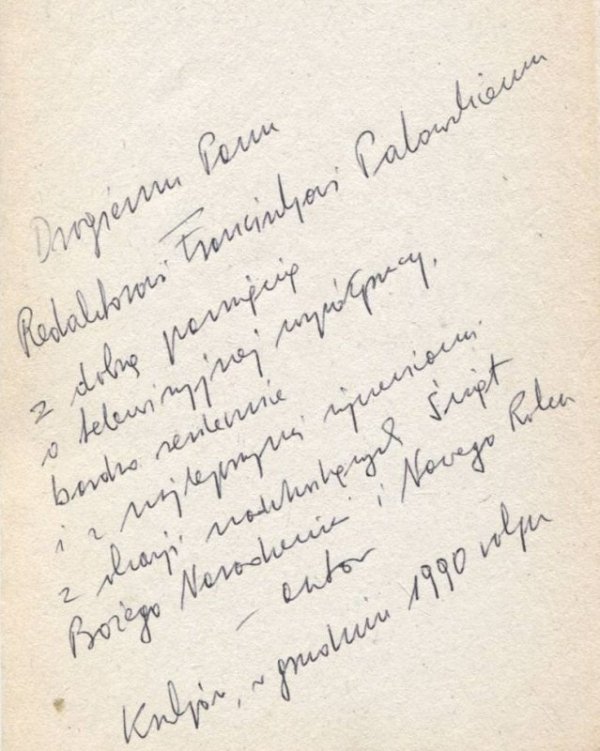 Drogiemu Panu
Redaktorowi Franciszkowi Palowskiemu
z dobrą pamięcią
o telewizyjnej współpracy,
bardzo serdecznie
i z najlepszymi życzeniami
z okazji nadchodzących Świąt
Bożego Narodzenia i Nowego Roku
– autor
w grudniu 1990 roku